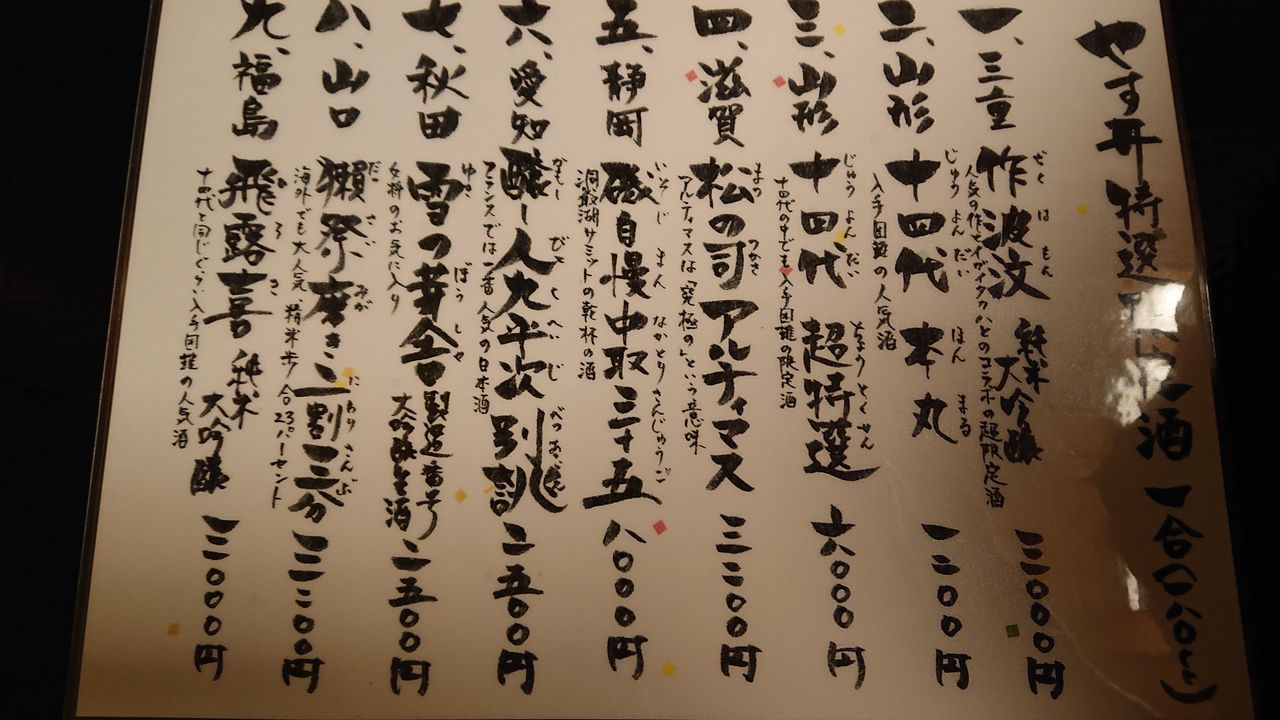 やす井 特選 酒 一合(一八〇cc)
一、三重 作 波汶 純米大吟醸 三〇〇〇円
ざく は もん
人気の作とイルイタカとのコラボの超限定酒
二、山形 十四代 本丸 一二〇〇円
じゅうよんだい ほんまる
入手困難の人気酒
三、山形 十四代 超特選 六〇〇〇円
じゅうよんだい ちょうとくせん
十四代の中でも入手困難の限定酒
四、滋賀 松の司 アルティマス 三二〇〇円
まつ つかさ
アルティマスは「究極の」という意味
五、静岡 磯自慢 中取三十五 八〇〇〇円
いそじまん なかとりさんじゅうご
洞爺湖サミットの乾杯の酒
六、愛知 醸し人九平次 別誂 二五〇〇円
かもし びと へいじ べつあつらえ
フランスでは一番人気の日本酒
七、秋田 雪の茅舎 製造番号 大吟醸生酒 二五〇〇円
ゆき ぼうしゃ
女将のお気に入り
八、山口 獺祭 磨き二割三分 三二〇〇円
だっさい みが にわりさんぶ
海外でも大人気 精米歩合23パーセント
九、福島 飛露喜 純米大吟醸 三〇〇〇円
ひろき
十四代と同じぐらい入手困難の人気酒